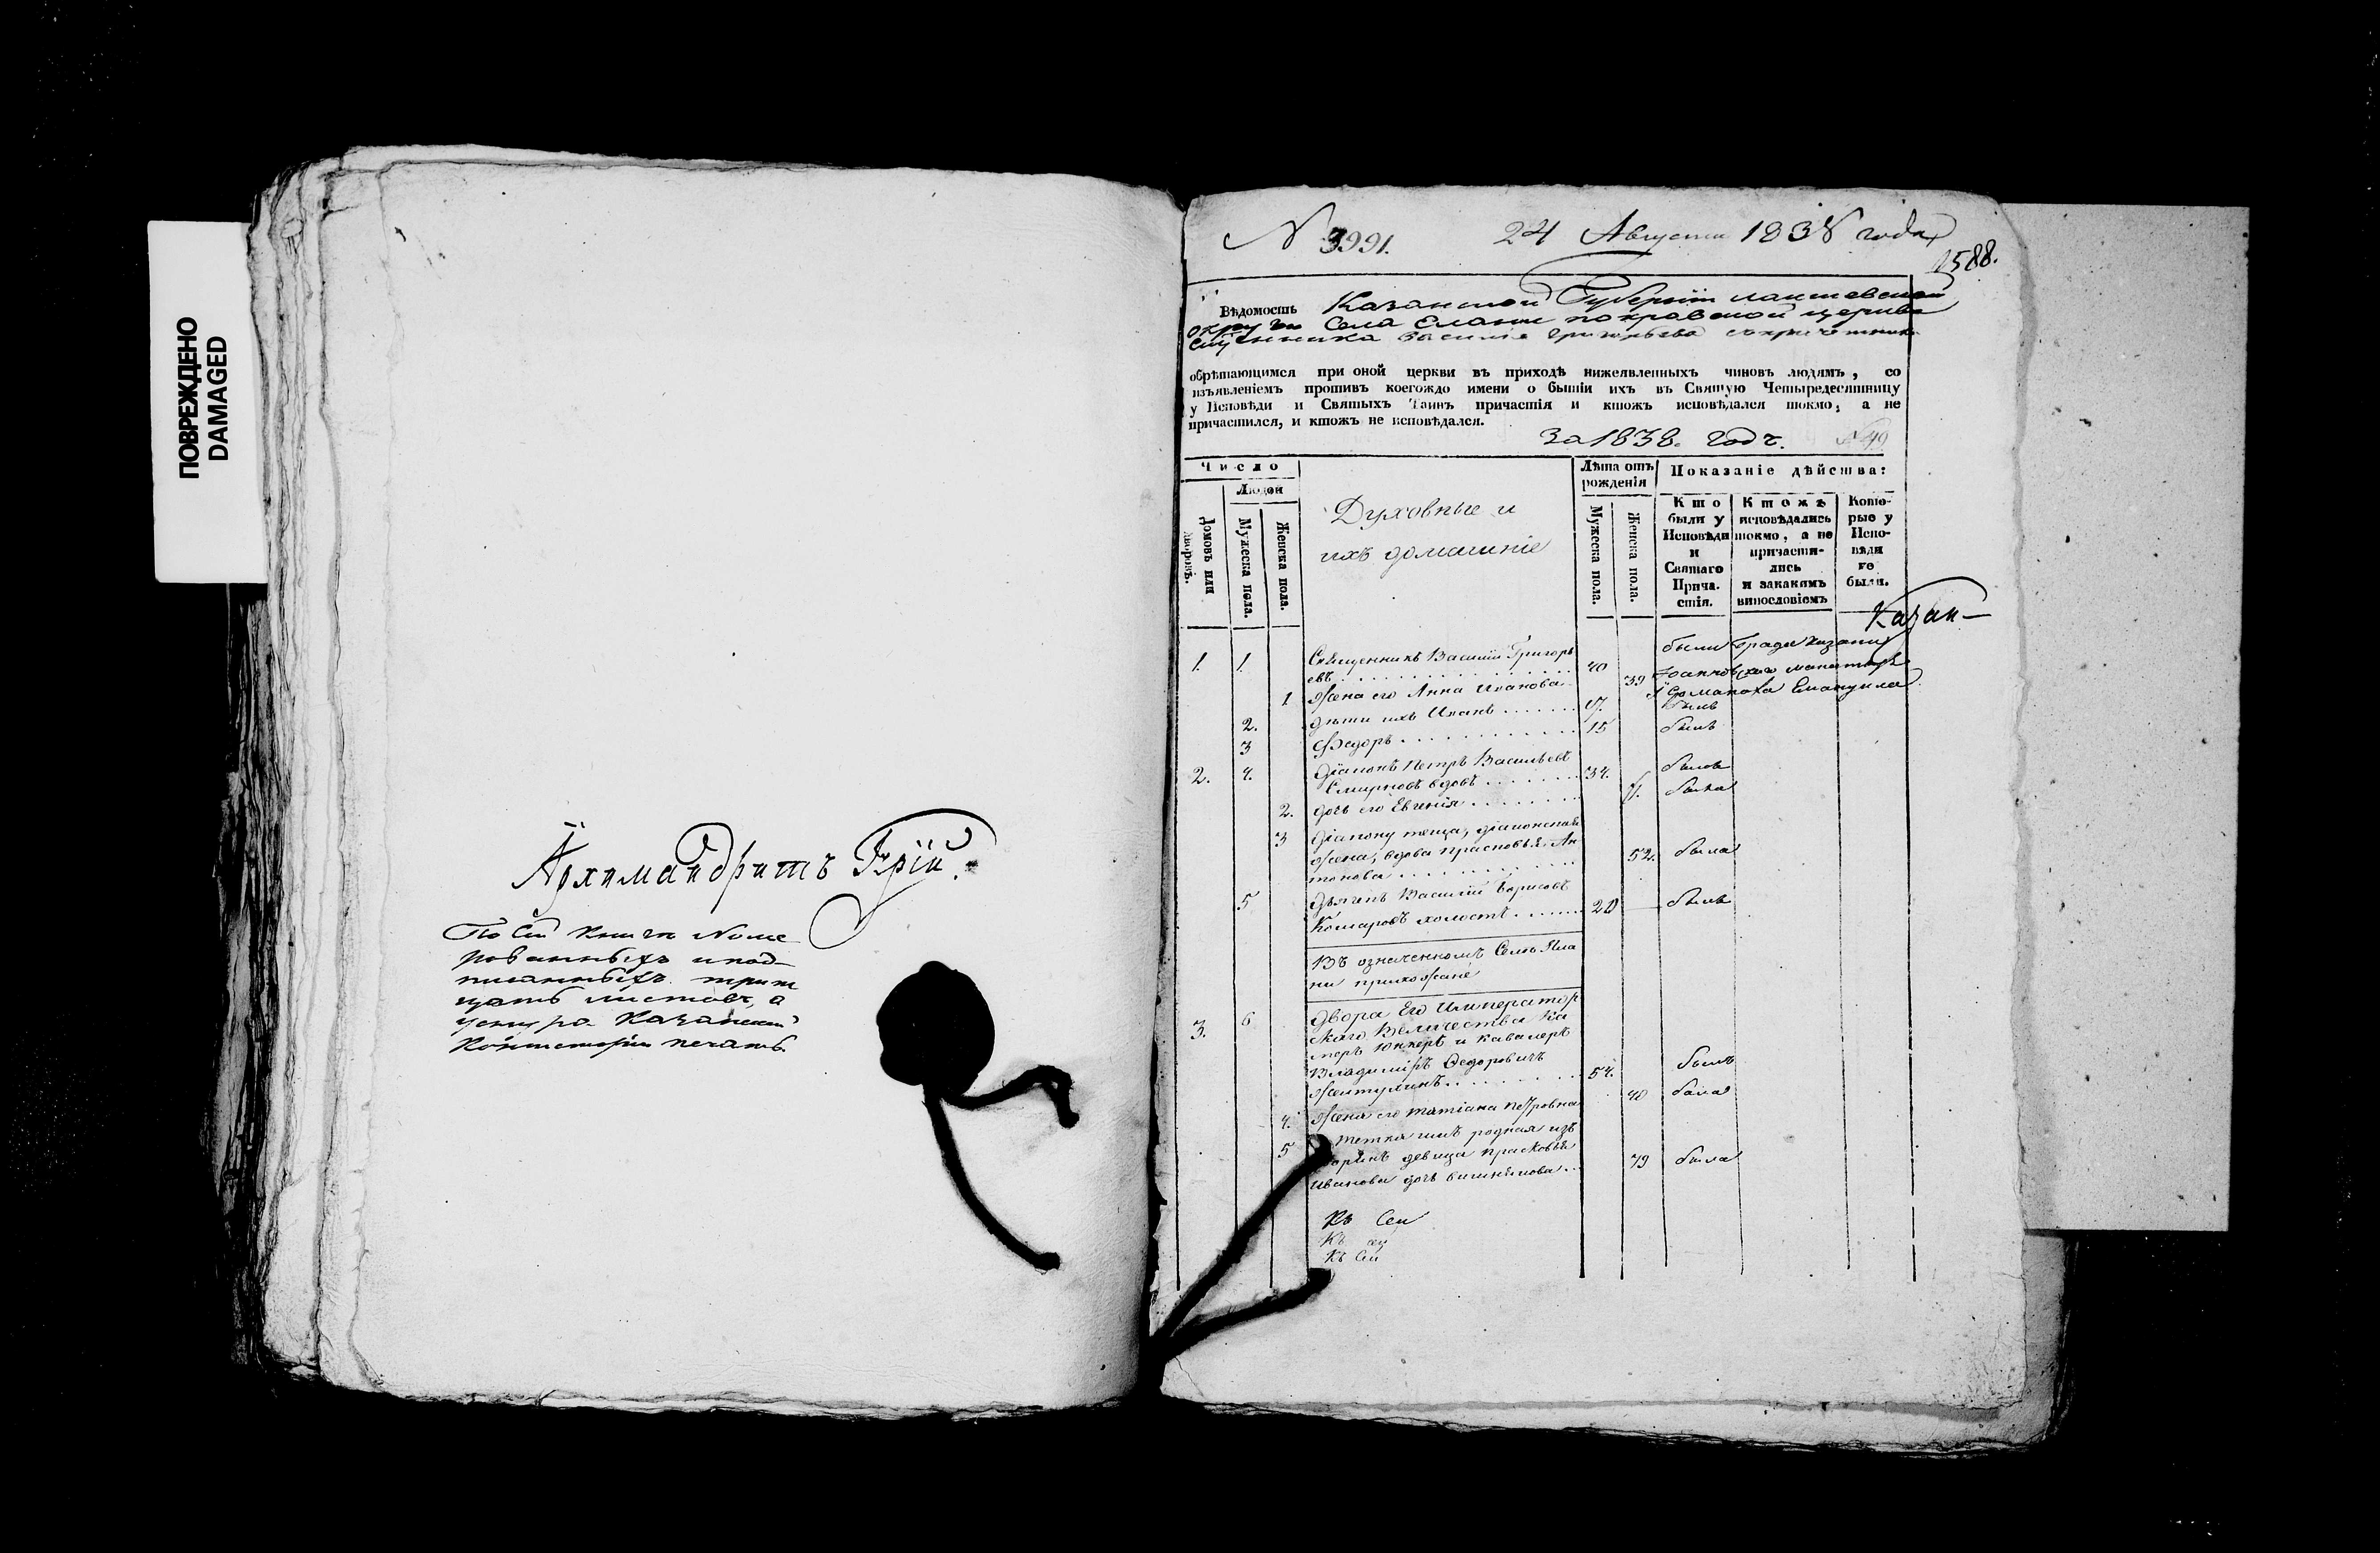 ПОВРЕЖДЕНО
DAMAGED
Архимандритъ Гурій.
По сей книги Номе
рованныхъ и под-
писанныхъ трит
цать листовъ, а
у снура Казанской
Консисторіи печать.
N 3991. 24 Августа 1838 года
1588.
Вѣдомость Казанской Губерніи лаишевской
округи Села Елани покровской церкви
Сщенника Василія Григорьева съ причетники
обрѣтающимся при оной церкви въ приходѣ нижеявленныхъ чиновъ людямъ, со
изъявленіемъ противъ коегождо имени о бытіи ихъ въ Святую Четыредесятницу
у Исповѣди и Святыхъ Таинъ причастія и ктожъ исповѣдался токмо, а не
причастился, и ктожъ не исповѣдался.
За 1838. годъ. №49
Число
Людей
Домовъ или дворовъ.
Мужеска пола.
Женска пола.
Духовные и
ихъ домашніе
Лѣта отъ
рожденія
Мужеска пола.
Женска пола.
Показаніе дѣйства:
Кто
были у
Исповѣди
и
Святаго
Прича-
стія.
Ктожъ
исповѣдались
токмо, а не
причасти-
лись
и закакимъ
винословіемъ
Кото-
рые у
Испо-
вѣди
не
были.
Казан-
1. 1. Священникъ Василій Григорь были Града Казани
евъ 40 Іоанновскаго монастыря
1 Жена его Анна Иванова 39 Іеромонаха Емануила
2. дѣти ихъ Иванъ 17. былъ
3 Ѳедоръ 15 былъ
2. 4. Діаконъ Петръ Васильевъ
Смирновъ вдовъ 34. былъ
2. дочь его Евгенія 11. была
3 Діакону теща, діаконская
жена, вдова Прасковья Ан
тонова 52. была
5 Дьячекъ Василій Борисовъ
Комаровъ холостъ 20 былъ
Въ означенномъ Селѣ Ела
ни прихожане
3. 6 Двора Его Император
скаго Величества Ка
меръ Юнкеръ и кавалеръ
Владиміръ Ѳедоровичъ
Желтухинъ 54. былъ
4. Жена его Татіана Петровна 40 была
5 тетка имъ родная изъ
дворянъ девица Прасковья
Иванова дочь 79 была
Къ Сей
Къ сей
Къ Сей